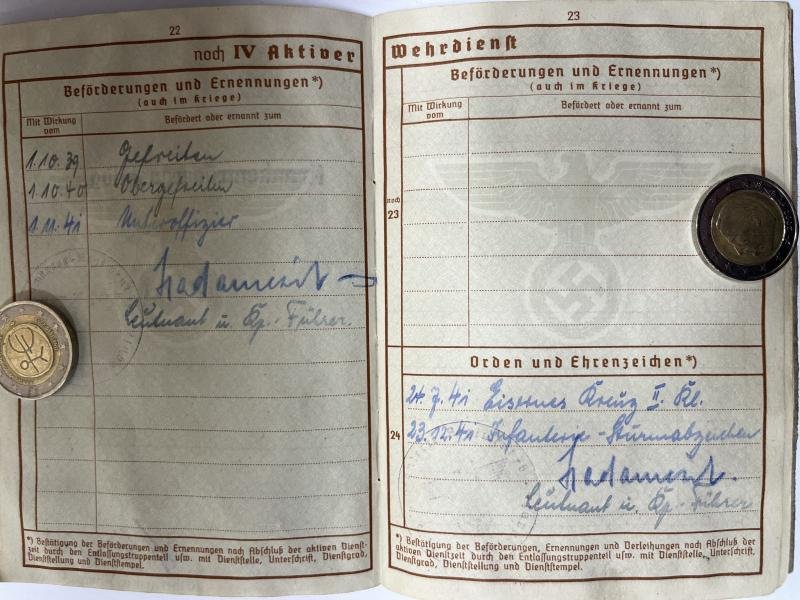 22
noch IV Aktiver
Beförderungen und Ernennungen*)
(auch im Kriege)
Mit Wirkung vom
Befördert oder ernannt zum
1.10.39 Gefreiten
1.10.40 Obergefreiten
1.11.41 Unteroffizier
Leutnant u. Kp.-Führer.
*) Bestätigung der Beförderungen und Ernennungen nach Abschluß der aktiven Dienst-
zeit durch den Entlassungstruppenteil usw. mit Dienststelle, Unterschrift, Dienstgrad,
Dienststellung und Dienststempel.
23
Wehrdienst
Beförderungen und Ernennungen*)
(auch im Kriege)
Mit Wirkung vom
Befördert oder ernannt zum
noch
23
Orden und Ehrenzeichen*)
24.7.41 Eisernes Kreuz II. Kl.
24
23.12.41 Infanterie-Sturmabzeichen
Leutnant u. Kp.-Führer
*) Bestätigung der Beförderungen, Ernennungen und Verleihungen nach Abschluß der
aktiven Dienstzeit durch den Entlassungstruppenteil usw. mit Dienststelle, Unterschrift,
Dienstgrad, Dienststellung und Dienststempel.